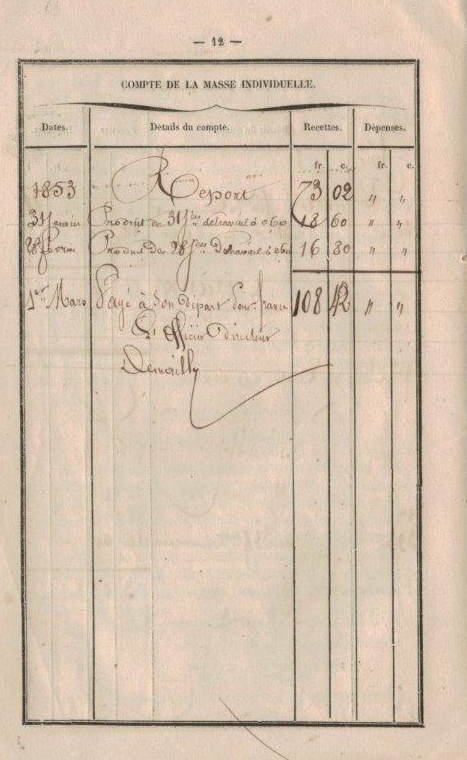 — 12 —
COMPTE DE LA MASSE INDIVIDUELLE.
Dates. Détails du compte. Recettes. Dépenses.
fr. c. fr. c.
1853 Report 73 02 " "
31 Janvier Produit de 31 jrs de travail à 0 60 18 60 " "
28 février Produit de 28 jrs de travail à 0 60 16 80 " "
1er Mars Payé à son départ pour france 108 42 " "
L'officier Directeur
Demailly